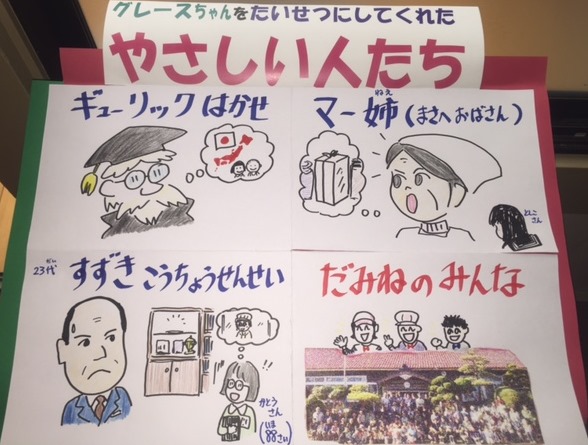 グレースちゃんをたいせつにしてくれた
やさしい人たち
ギューリックはかせ
マー姉(まさへおばさん)
ねえ
とんこさん
23代
だい
すずきこうちょうせんせい
かとうさん
(いま88さい)
だみねのみんな